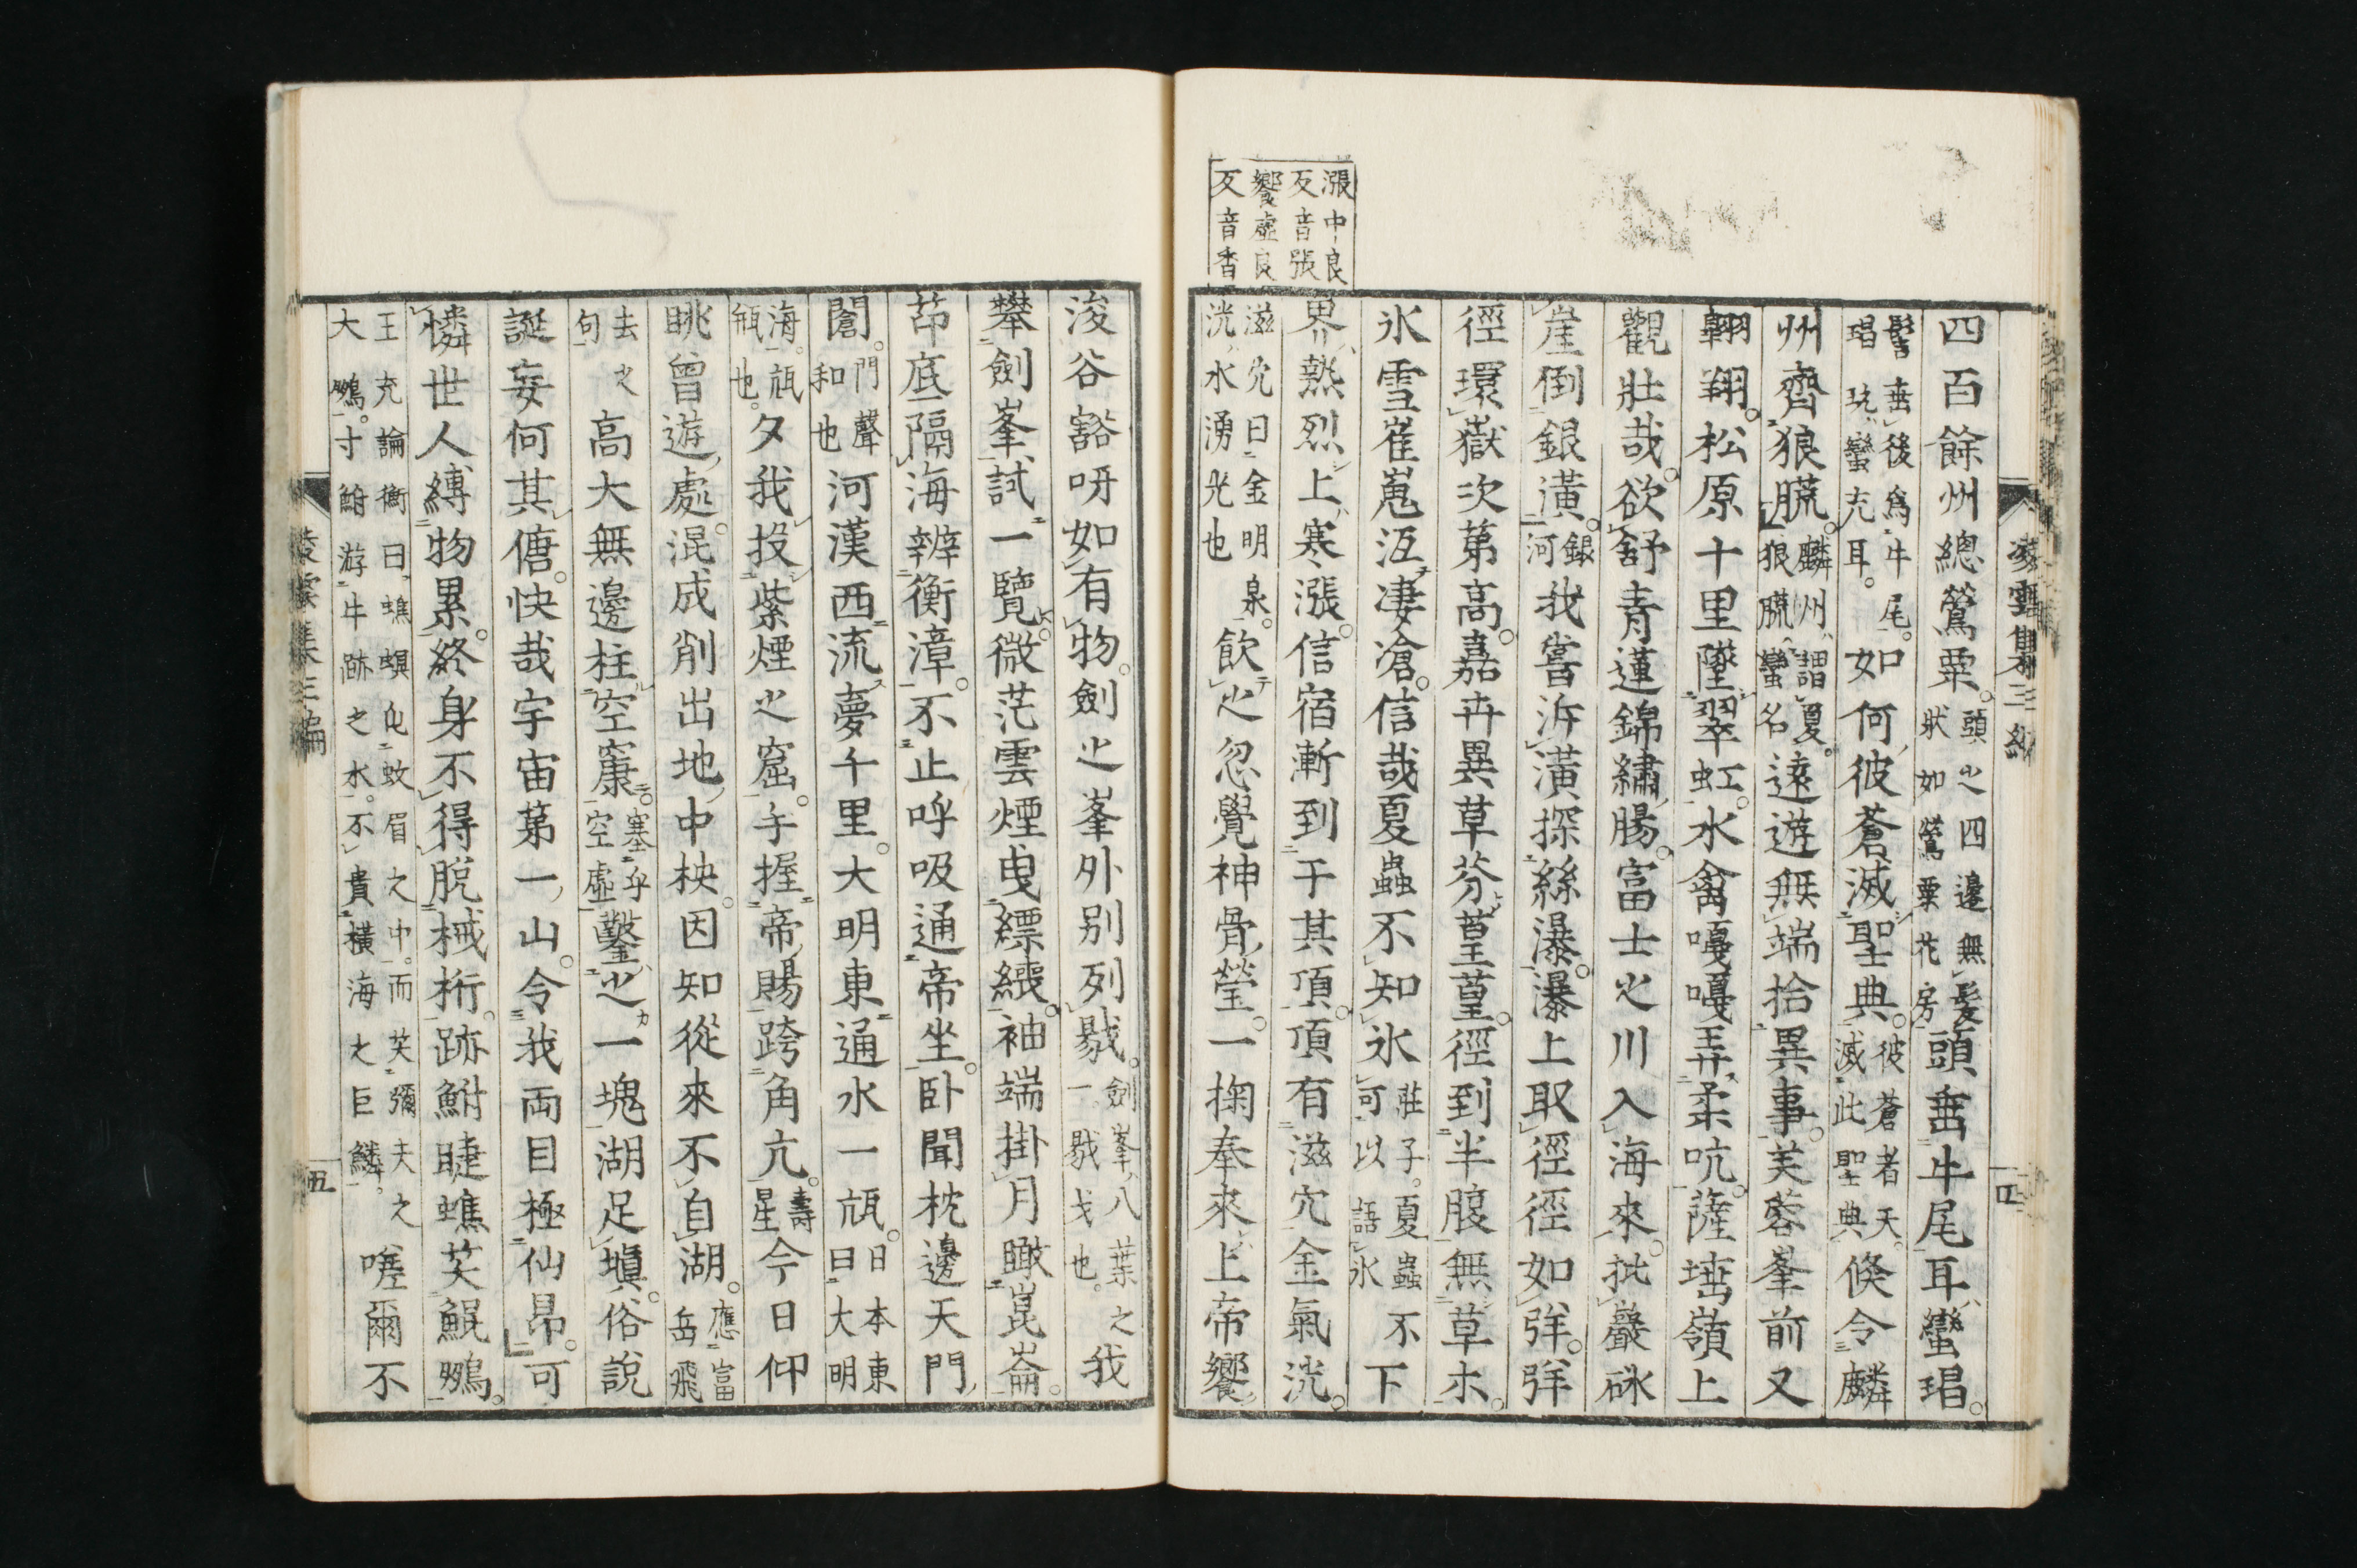 漲中良
反音張
饗虛良
反音香
四百餘州總鶯粟。頭之四邊無髮狀如鶯粟花房頭垂牛尾耳蠻琩。
髻垂後爲牛尾。琩玧蠻充耳。如何彼蒼滅聖典。彼蒼者天。滅此聖典倏令麟
州齊狼䑃。麟州謂夏。狼䑃蠻名遠遊無端拾異事。芙蓉峯前又
翱翔。松原十里墜翠虹。水禽嘎嘎弄柔吭。薩埵嶺上
觀壯哉。欲舒青蓮錦繡腸。富士之川入海來。批巖砯
崖倒銀潢。銀河我嘗泝潢探絲瀑。瀑上取徑徑如𢏺。𢏺
徑環嶽次第高。嘉卉異草芬葟葟。徑到半腹無草木。
氷雪崔嵬冱凄滄。信哉夏蟲不知氷莊子。夏蟲不可以語氷下
界熱烈上寒漲。信宿漸到于其頂。頂有滋穴金氣洸。
滋穴曰金明泉。洸水湧光也飲之忽覺神骨瑩。一掬奉來上帝饗
浚谷豁呀如有物。劍之峯外別列戣。劍峯八葉之一。戣戈也。我
攀劍峯試一覽。微茫雲煙曳縹繐。袖端掛月瞰崑崙。
茚底隔海辨衡漳。不止呼吸通帝坐。卧聞枕邊天門
閶。門聲和也河漢西流夢千里。大明東通水一㼚。日本東曰大明
海。㼚瓶也。夕我投紫煙之窟。手握帝賜跨角亢。壽星今日仰
眺曾遊處。混成削出地中柍。因知從來不自湖。應富岳飛
去之句高大無邊柱空㝩。塞乎空虛鑿之一塊湖足塡。俗說
誕妄何其傏。快哉宇宙第一山。令我両目極仙昻。可
憐世人縛物累。終身不得脫械桁。跡鮒睫蟭笑鯤鵬。
王充論衡曰蟭螟化蚊眉之中。而笑彌天之大鵬。寸鮒游牛跡之水。不貴橫海之巨鱗。嗟爾不